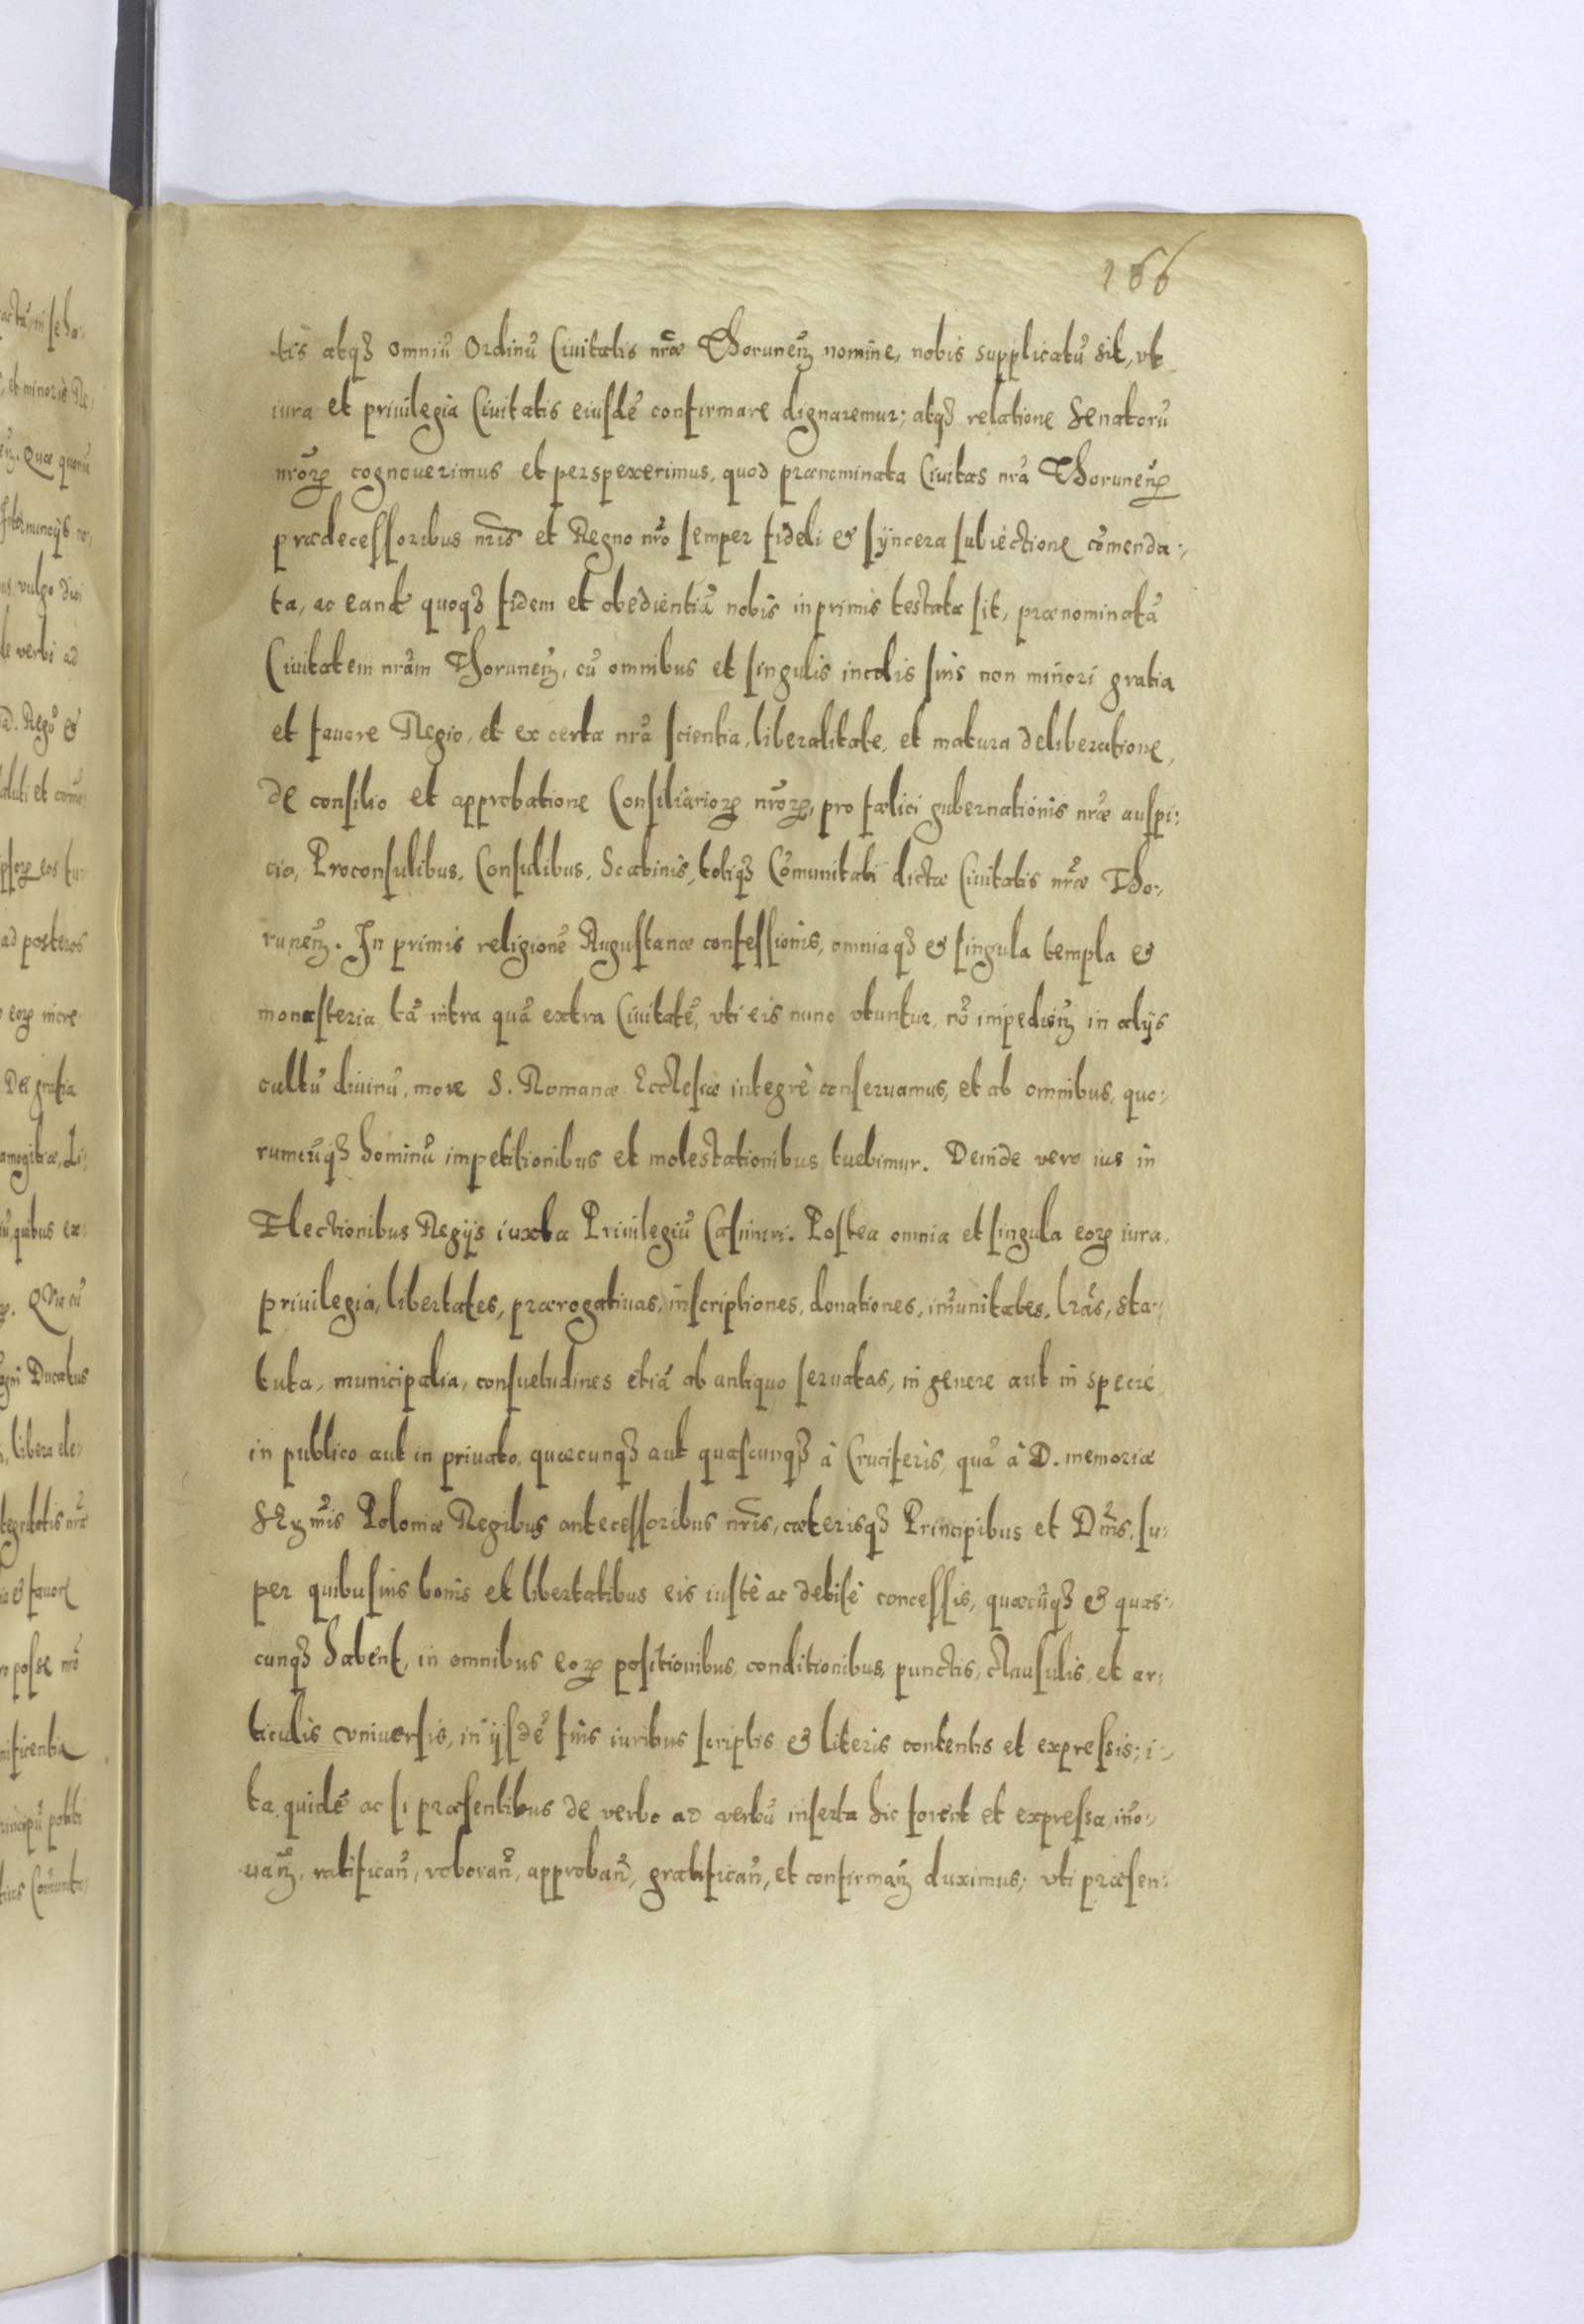 166
tis atqȝ omniũ Ordinũ Ciuitatis nr̃æ Thoruneñ nomine, nobis supplicatũ sit, vt
iura et priuilegia Ciuitatis eiusdẽ confirmare dignaremur; atqȝ relatione Senatorũ
nr̃oꝝ cognouerimus et perspexerimus, quod prænominata Ciuitas nr̃a Thoruneñ
prædecessoribus nr̃is et Regno nr̃o semper fideli & syncera subiectione cõmenda:
ta, ac eand quoqȝ fidem et obedientiã nobis inprimis testata sit, prænominatã
Ciuitatem nr̃am Thoruneñ, cũ omnibus et singulis incolis suis non minori gratia
et fauore Regio, et ex certa nr̃a scientia, liberalitate, et matura deliberatione,
de consilio et approbatione Consiliarioꝝ nr̃oꝝ, pro fælici gubernationis nr̃æ auspi:
cio, Proconsulibus, Consulibus, Scabinis, totiqȝ Cõmunitati dictæ Ciuitatis nr̃æ Tho:
runeñ. In primis religionẽ Augustanæ confessionis, omniaqȝ & singula templa &
monasteria tã intra quã extra Ciuitatẽ, vti eis nunc vtuntur, nõ impedieñ in alijs
cultũ diuinũ, more S. Romanæ Ecclesiæ integrè conseruamus, et ab omnibus, quo:
rumcũqȝ hominũ impetitionibus et molestationibus tuebimur. Deinde vero ius in
Electionibus Regijs iuxta Priuilegiũ Casimiri. Postea omnia et singula eoꝝ iura,
priuilegia, libertates, prærogatiuas, inscriptiones, donationes, imũnitates, lr̃as, sta:
tuta, municipalia, consuetudines etiã ab antiquo seruatas, in genere aut in specie,
in publico aut in priuato, quæcunqȝ aut quascunqȝ à Cruciferis, quã à D. memoriæ
SEr̃mis Poloniæ Regibus antecessoribus nr̃is, cæterisqȝ Principibus et Dn̄is, su:
per quibusuis bonis et libertatibus eis iustè ac debitè concessis, quæcũqȝ & quas:
cunqȝ habent, in omnibus eoꝝ positionibus, conditionibus, punctis, clausulis, et ar:
ticulis vniuersis, in ijsdẽ suis iuribus scriptis & literis contentis et expressis; i:
ta quidẽ ac si præsentibus de verbo ad verbũ inserta hic forent et expressa, iño:
uañ, ratificañ, roborañ, approbañ, gratificañ, et confirmañ duximus; vti præsen: